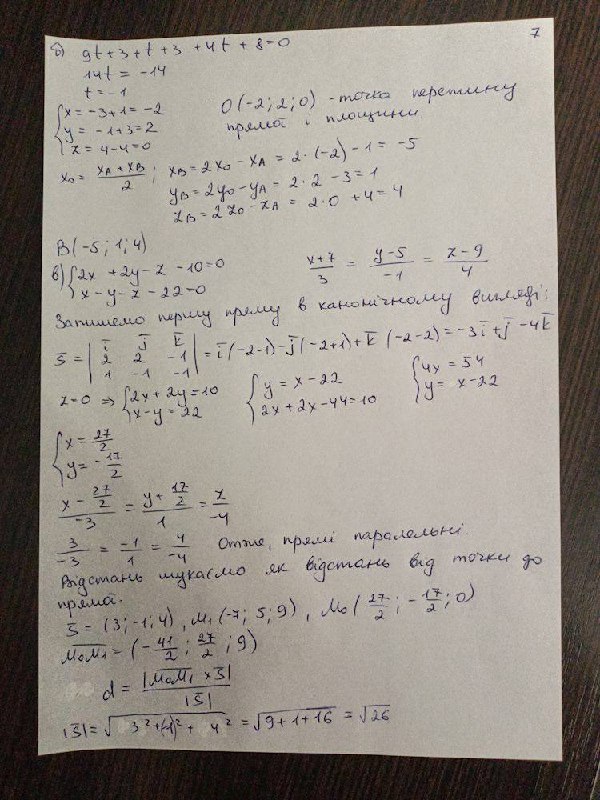 7
б) 9t+3+t+3+4t+8=0
14t = -14
t = -1
{x = -3+1 = -2
y = -1+3=2
z = 4-4=0
O(-2; 2; 0) - точка перетину
прямої і площини
x₀ = (xA + xB)/2 ; xB = 2x₀ - xA = 2·(-2) - 1 = -5
yB = 2y₀ - yA = 2·2 - 3 = 1
zB = 2z₀ - zA = 2·0 + 4 = 4
B(-5; 1; 4)
в) {2x + 2y - z - 10 = 0
x - y - z - 22 = 0
(x+7)/3 = (y-5)/-1 = (z-9)/4
Запишемо першу пряму в канонічному вигляді:
s̄ = |ī j̄ k̄; 2 2 -1; 1 -1 -1| = ī(-2-1) - j̄(-2+1) + k̄(-2-2) = -3ī + j̄ - 4k̄
z=0 ⇒ {2x + 2y = 10; x - y = 22 {y = x - 22; 2x + 2x - 44 = 10 {4x = 54; y = x - 22
{x = 27/2
y = -17/2
(x - 27/2)/-3 = (y + 17/2)/1 = z/-4
3/-3 = -1/1 = 4/-4 Отже, прямі паралельні.
Відстань шукаємо як відстань від точки до
прямої.
s̄ = (3; -1; 4), M₁(-7; 5; 9), M₀(27/2; -17/2; 0)
M₀M₁ = (-41/2; 27/2; 9)
d = |M₀M₁ × s̄| / |s̄|
|s̄| = √(3² + (-1)² + 4²) = √(9+1+16) = √26